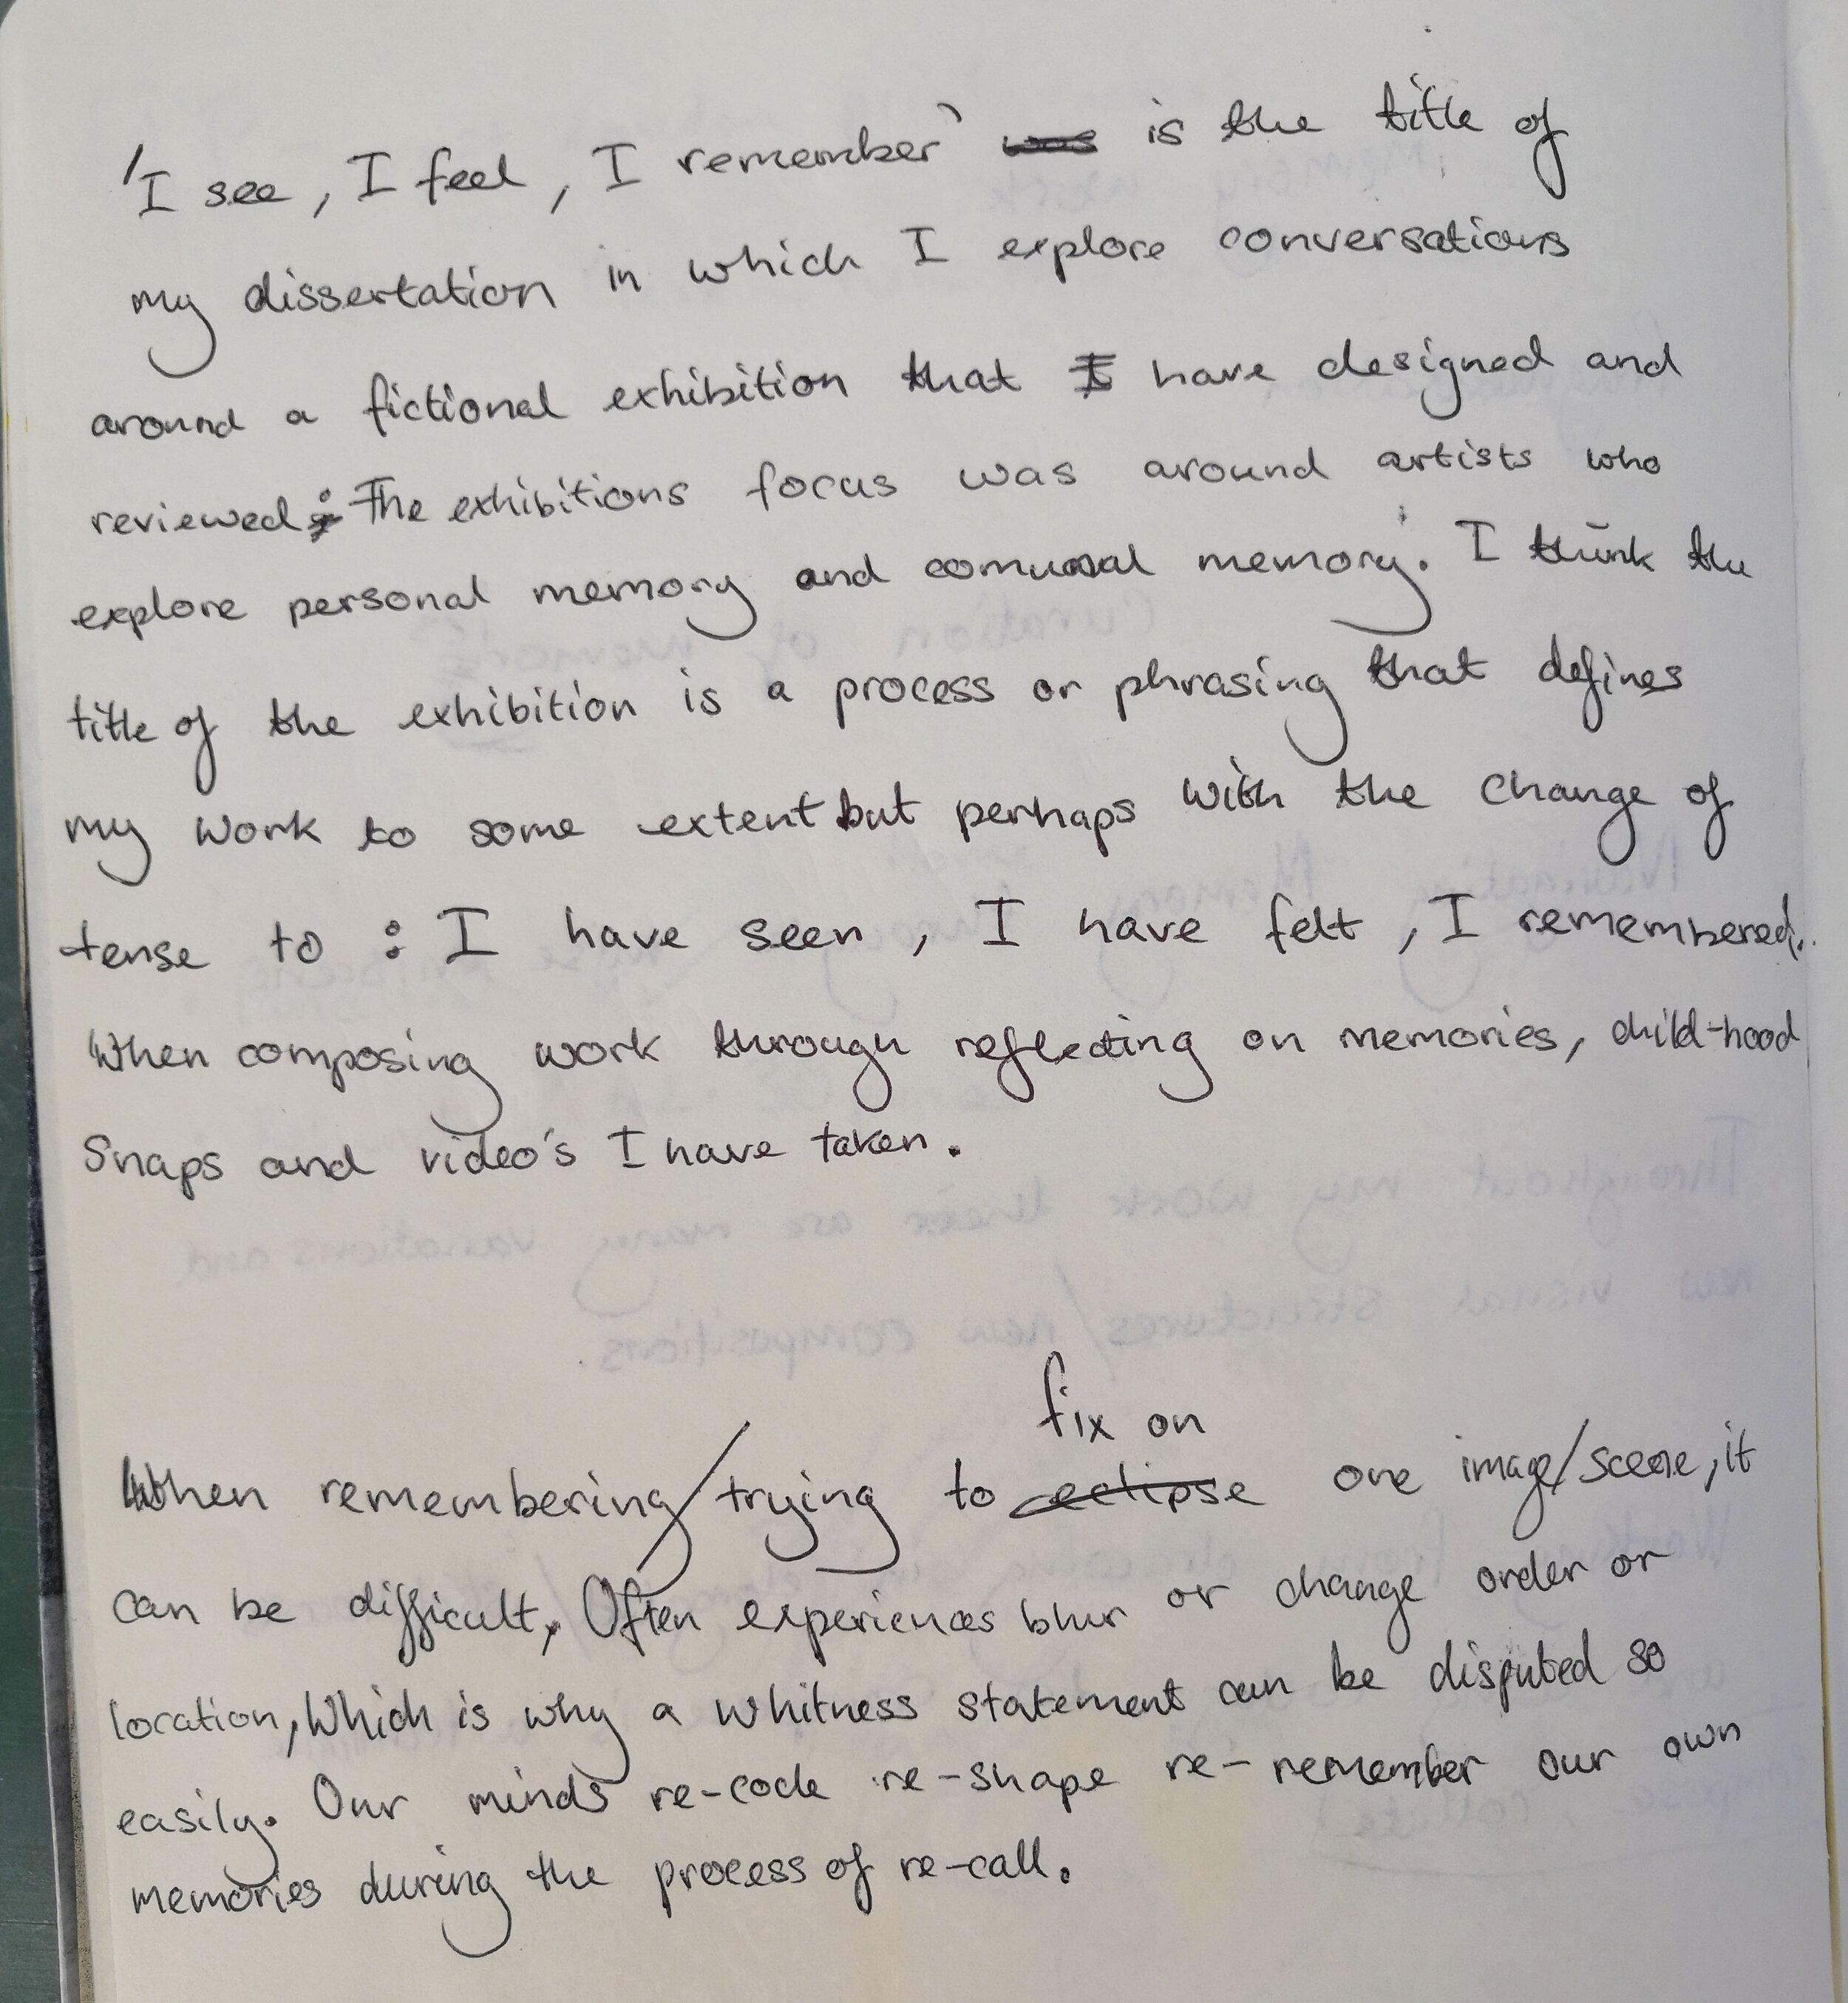 'I see, I feel, I remember' was is the title of
my dissertation in which I explore conversations
around a fictional exhibition that I have designed and
reviewed: The exhibitions focus was around artists who
explore personal memory and comunal memory. I think the
title of the exhibition is a process or phrasing that defines
my work to some extent but perhaps with the change of
tense to : I have seen, I have felt, I remembered.
When composing work through reflecting on memories, child-hood
Snaps and video's I have taken.
fix on
When remembering/trying to eclipse one image/scene, it
can be difficult, Often experiences blur or change order or
location, Which is why a whitness statement can be disputed so
easily. Our minds re-code re-shape re-remember our own
memories during the process of re-call.